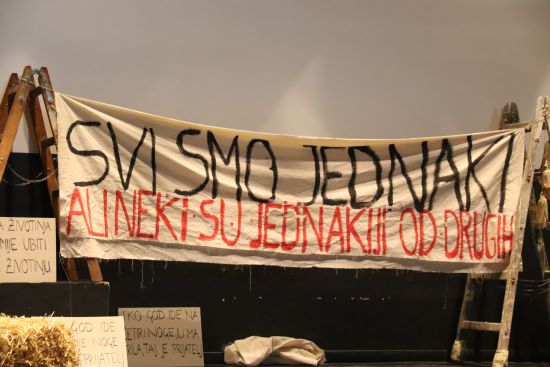 SVI SMO JEDNAKI
ALI NEKI SU JEDNAKIJI OD DRUGIH
A ŽIVOTINJA
MIJE UBITI
ŽIVOTINJU
GOD IDE
NOGE
PRIJATELJ
TKO GOD IDE NA
ČETIRI NOGE, ILI IMA
KRILA, TAJ JE PRIJATELJ